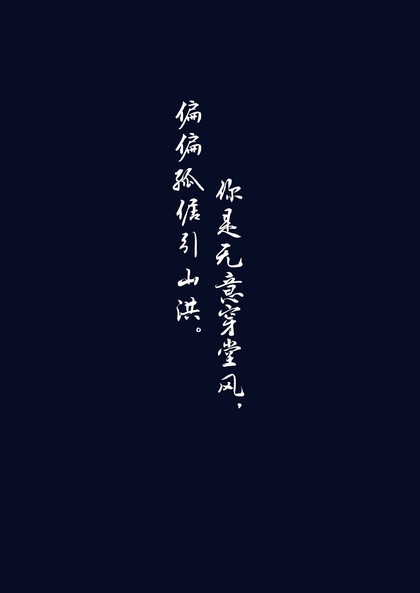 你是无意穿堂风，
偏偏孤倨引山洪。